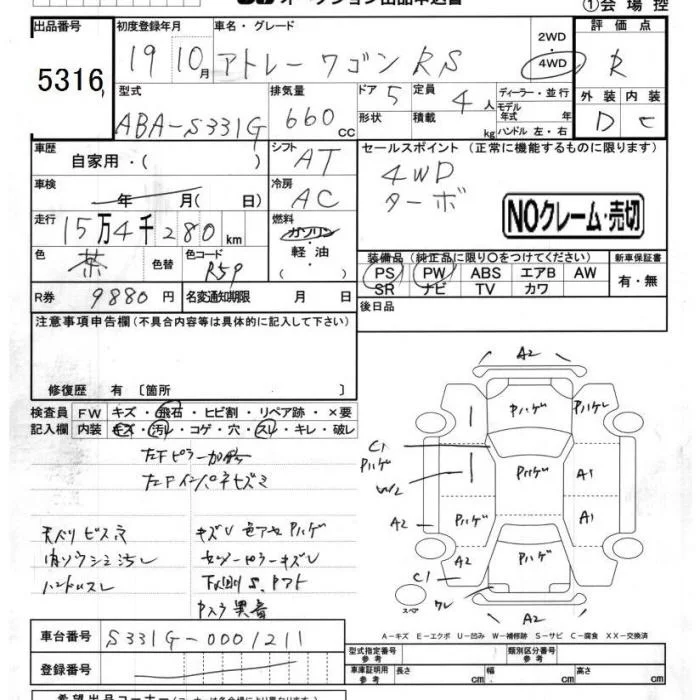 オークション出品申込書
①会場控
出品番号 初度登録年月 車名・グレード 評価点
5316 19 10月 アトレーワゴン RS 2WD 4WD R
型式 排気量 ドア 定員 ディーラー・並行 外装 内装
ABA-S331G 660 CC 5 4人 モデル年式 年 D C
形状 積載 kg ハンドル 左・右
車歴 自家用・( ) シフト AT セールスポイント (正常に機能するものに限ります)
車検 年 月( 日) 冷房 AC 4WD
ターボ
NOクレーム・売切
走行 15万4千280km 燃料 ガソリン・軽油
色 茶 色替 色コード R59 ( )
装備品(純正品に限り○をつけてください) 新車保証書
PS PW ABS エアB AW 有・無
SR ナビ TV カワ
R券 9880円 名変通知期限 月 日 後日品
注意事項申告欄(不具合内容等は具体的に記入して下さい)
修復歴 有 〔箇所 〕
検査員 FW キズ・飛石・ヒビ割・リペア跡・×要
記入欄 内装 キズ・汚レ・コゲ・穴・スレ・キレ・破レ
左Fピラー加修
左Fインパネヒズミ
天バリビス穴 キズU 色アセ Pハゲ
ハンドルスレ
下廻りS、Pアト
A2
Pハゲ Pハゲレ
C1
Pハゲ Pハゲ A1
W2
A2 Pハゲ A1
Pハゲ
C1
スペア ワレ A2
A2
A-キズ E-エクボ U-凹み W-補修跡 S-サビ C-腐食 XX-交換済
車台番号 S331G-0001211
型式指定番号 参考 類別区分番号 参考
登録番号 車庫証明用 参考 長さ cm 幅 cm 高さ cm
希望出品コーナー